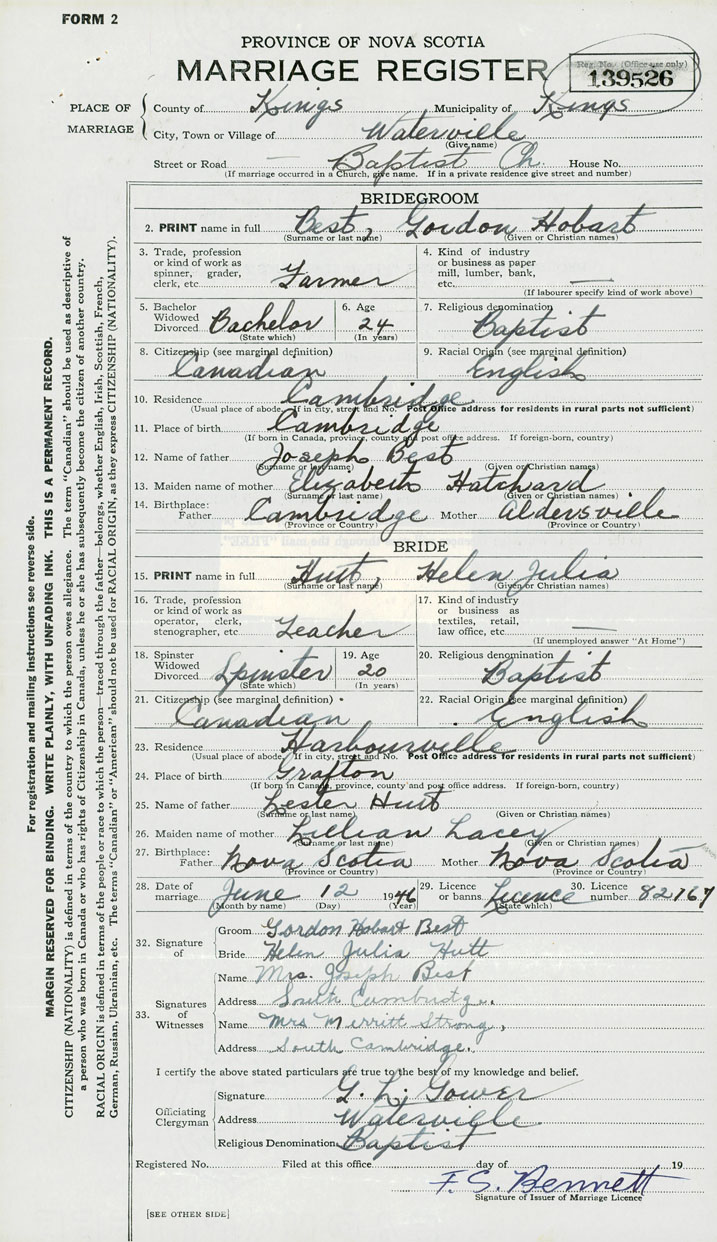 FORM 2
PROVINCE OF NOVA SCOTIA
MARRIAGE REGISTER
Reg. No. (Office use only)
139526
PLACE OF MARRIAGE
County of Kings Municipality of Kings
City, Town or Village of Waterville
(Give name)
Street or Road — Baptist Ch. House No.
(If marriage occurred in a Church, give name. If in a private residence give street and number)
BRIDEGROOM
2. PRINT name in full Best, Gordon Hobart
(Surname or last name) (Given or Christian names)
3. Trade, profession or kind of work as spinner, grader, clerk, etc. Farmer
4. Kind of industry or business as paper mill, lumber, bank, etc. —
(If labourer specify kind of work above)
5. Bachelor Widowed Divorced Bachelor
(State which)
6. Age 24
(In years)
7. Religious denomination Baptist
8. Citizenship (see marginal definition) Canadian
9. Racial Origin (see marginal definition) English
10. Residence Cambridge
(Usual place of abode. If in city, street and No. Post Office address for residents in rural parts not sufficient)
11. Place of birth Cambridge
(If born in Canada, province, county and post office address. If foreign-born, country)
12. Name of father Joseph Best
(Surname or last name) (Given or Christian names)
13. Maiden name of mother Elizabeth Hatchard
(Surname or last name) (Given or Christian names)
14. Birthplace: Father Cambridge Mother Aldersville
(Province or Country) (Province or Country)
BRIDE
15. PRINT name in full Hutt, Helen Julia
(Surname or last name) (Given or Christian names)
16. Trade, profession or kind of work as operator, clerk, stenographer, etc Teacher
17. Kind of industry or business as textiles, retail, law office, etc. —
(If unemployed answer "At Home")
18. Spinster Widowed Divorced Spinster
(State which)
19. Age 20
(In years)
20. Religious denomination Baptist
21. Citizenship (see marginal definition) Canadian
22. Racial Origin (see marginal definition) English
23. Residence Harbourville
(Usual place of abode. If in city, street and No. Post Office address for residents in rural parts not sufficient)
24. Place of birth Grafton
(If born in Canada, province, county and post office address. If foreign-born, country)
25. Name of father Lester Hutt
(Surname or last name) (Given or Christian names)
26. Maiden name of mother Lillian Lacey
(Surname or last name) (Given or Christian names)
27. Birthplace: Father Nova Scotia Mother Nova Scotia
(Province or Country) (Province or Country)
28. Date of marriage June 12 1946
(Month by name) (Day) (Year)
29. Licence or banns. Licence
(State which)
30. Licence number 82767
32. Signature of
Groom Gordon Hobart Best
Bride Helen Julia Hutt
33. Signatures of Witnesses
Name Mrs. Joseph Best
Address South Cambridge.
Name Mrs Merritt Strong,
Address South Cambridge.
I certify the above stated particulars are true to the best of my knowledge and belief.
Officiating Clergyman
Signature G. L. Gower
Address Waterville
Religious Denomination Baptist
Registered No. Filed at this office day of 19
F. S. Bennett
Signature of Issuer of Marriage Licence
[SEE OTHER SIDE]
For registration and mailing instructions see reverse side.
MARGIN RESERVED FOR BINDING. WRITE PLAINLY, WITH UNFADING INK. THIS IS A PERMANENT RECORD.
CITIZENSHIP (NATIONALITY) is defined in terms of the country to which the person owes allegiance. The term "Canadian" should be used as descriptive of
a person who was born in Canada or who has rights of Citizenship in Canada, unless he or she has subsequently become the citizen of another country.
RACIAL ORIGIN is defined in terms of the people or race to which the person—traced through the father—belongs, whether English, Irish, Scottish, French,
German, Russian, Ukrainian, etc. The terms "Canadian" or "American" should not be used for RACIAL ORIGIN, as they express CITIZENSHIP (NATIONALITY).